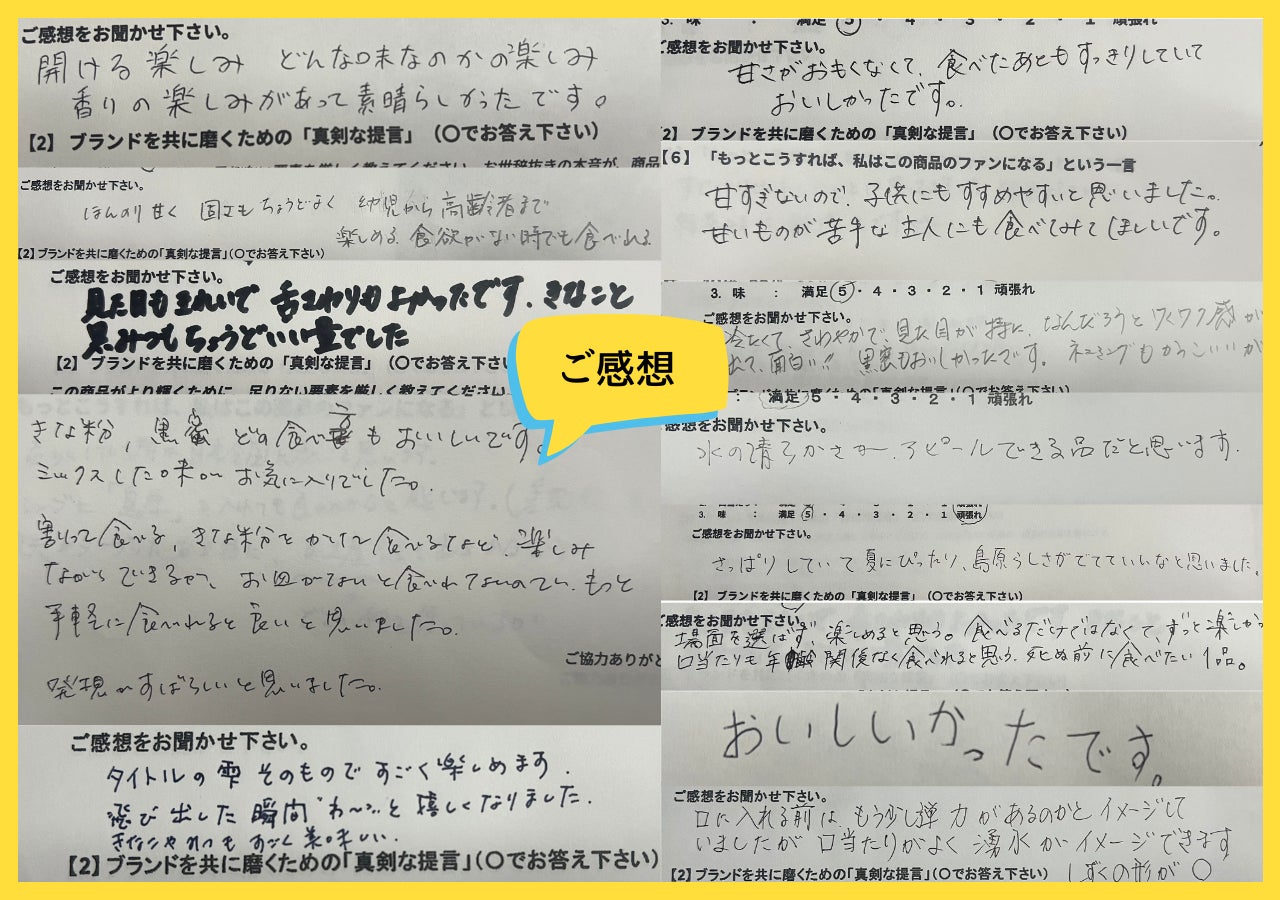 ご感想をお聞かせ下さい。
開ける楽しみ どんな味なのかの楽しみ
香りの楽しみがあって素晴らしかったです。
【2】 ブランドを共に磨くための「真剣な提言」（〇でお答え下さい）
ご感想をお聞かせ下さい。
ほんのり甘く 固さもちょうどよく 幼児から高齢者まで
楽しめる 食欲がない時でも食べれる
【2】ブランドを共に磨くための「真剣な提言」（〇でお答え下さい）
ご感想をお聞かせ下さい。
見た目もきれいで 舌ざわりもよかったです。きなこと
黒みつもちょうどいい量でした
【2】 ブランドを共に磨くための「真剣な提言」（〇でお答え下さ
この商品がより輝くために、足りない要素を厳しく教えてください。
きな粉，黒蜜 どの食べ方もおいしいです。
ミックスした味がお気に入りでした。
割って食べる，きな粉をかけて食べるなど、楽しみ
ながらできるが、お皿がないと食べれてないので、もっと
手軽に食べれると良いと思いました。
ご協力ありがと
発想がすばらしいと思いました。
ご感想をお聞かせ下さい。
タイトルの雫そのものですごく楽しめます．
飛び出した瞬間"わ〜"と嬉しくなりました．
すごく美味しい．
【2】ブランドを共に磨くための「真剣な提言」（〇でお答え下さい）
ご感想
3. 味 ： 満足 5 ・ 4 ・ 3 ・ 2 ・ 1 頑張れ
ご感想をお聞かせ下さい。
甘さがおもくなくて、食べたあともすっきりしていて
おいしかったです。
2】 ブランドを共に磨くための「真剣な提言」（〇でお答え下さい）
【6】 「もっとこうすれば、私はこの商品のファンになる」という一言
甘すぎないので、子供にもすすめやすいと思いました。
甘いものが苦手な主人にも食べてみてほしいです。
3. 味 ： 満足 5 ・ 4 ・ 3 ・ 2 ・ 1 頑張れ
ご感想をお聞かせ下さい。
冷たくて、さわやかで、見た目が特に、なんだろうとワクワク感が
れて、面白い!! 黒蜜もおいしかったです。ネーミングもかっこいいが
満足 5 ・ 4 ・ 3 ・ 2 ・ 1 頑張れ
感想をお聞かせ下さい。
水の清らかさを、アピールできる品だと思います．
3. 味 ： 満足 5 ・ 4 ・ 3 ・ 2 ・ 1 頑張れ
ご感想をお聞かせ下さい。
さっぱりしていて夏にぴったり、島原らしさがでてていいなと思いました。
【2】 ブランドを共に磨くための「真剣な提言」（〇でお答え下さい）
ご感想をお聞かせ下さい。
場面を選ばず、楽しめると思う。食べるだけではなくて、ずっと楽しかっ
口当たりも年齢関係なく食べれると思う、死ぬ前に食べたい1品。
おいしいかったです。
ご感想をお聞かせ下さい。
口に入れる前は、もう少し弾力があるのかとイメージして
いましたが 口当たりがよく 湧水がイメージできます
【2】ブランドを共に磨くための「真剣な提言」（〇でお答え下さい） しずくの形が〇